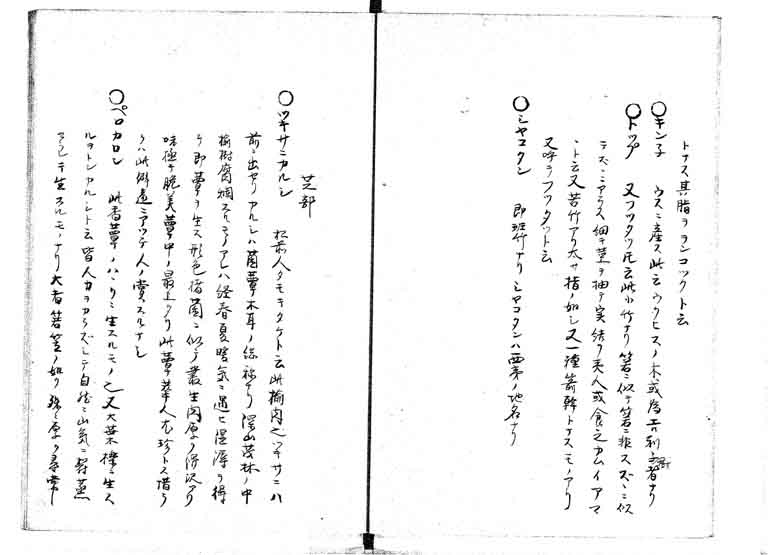 トナス其脂ヲランコツクト云
〇キン子 ウスニ産ス此云ウクヒスノ木或為
〇トツプ 又フツタツ氏云此小竹ナリ箬ニ似テ箬ニ非ススズニ似
テスズニアラス細キ葉ヲ抽テ実結フ夷人或食之カムイアマ
ト云又苦竹アリ太サ指ノ如シ又一種箭幹トナスモノアリ
又呼テフツタツト云
〇シヤコタン 即斑竹ナリシヤコタンハ西夷ノ地名ナリ
芝部
〇ツキサニカルシ 松前人タモキタケト云此楡肉之ツキサニハ
前ニ出セリカルシハ菌蕈木耳ノ総称ナリ深山茂林ノ中
楡樹腐爛スルモノアレハ経春夏暑気ニ遇ヒ湿潯ヲ得
テ即蕈ヲ生ス形色 菌ニ似テ叢生 厚ク 沢アリ
味極テ脆美蕈中ノ最上ナリ此蕈華人尤珍トス惜ラ
クハ此僻遠ニアツテ人ノ賞スルナシ
〇ペロカルシ 此香蕈ノハンノキニ生スルモノ之又大葉櫟ニ生ス
ルヲトンカルシト云皆人力ヲカラズシテ自然ニ山気ニ蒸
サレテ生スルモノナリ大者箬笠ノ如ク 厚ク尋常